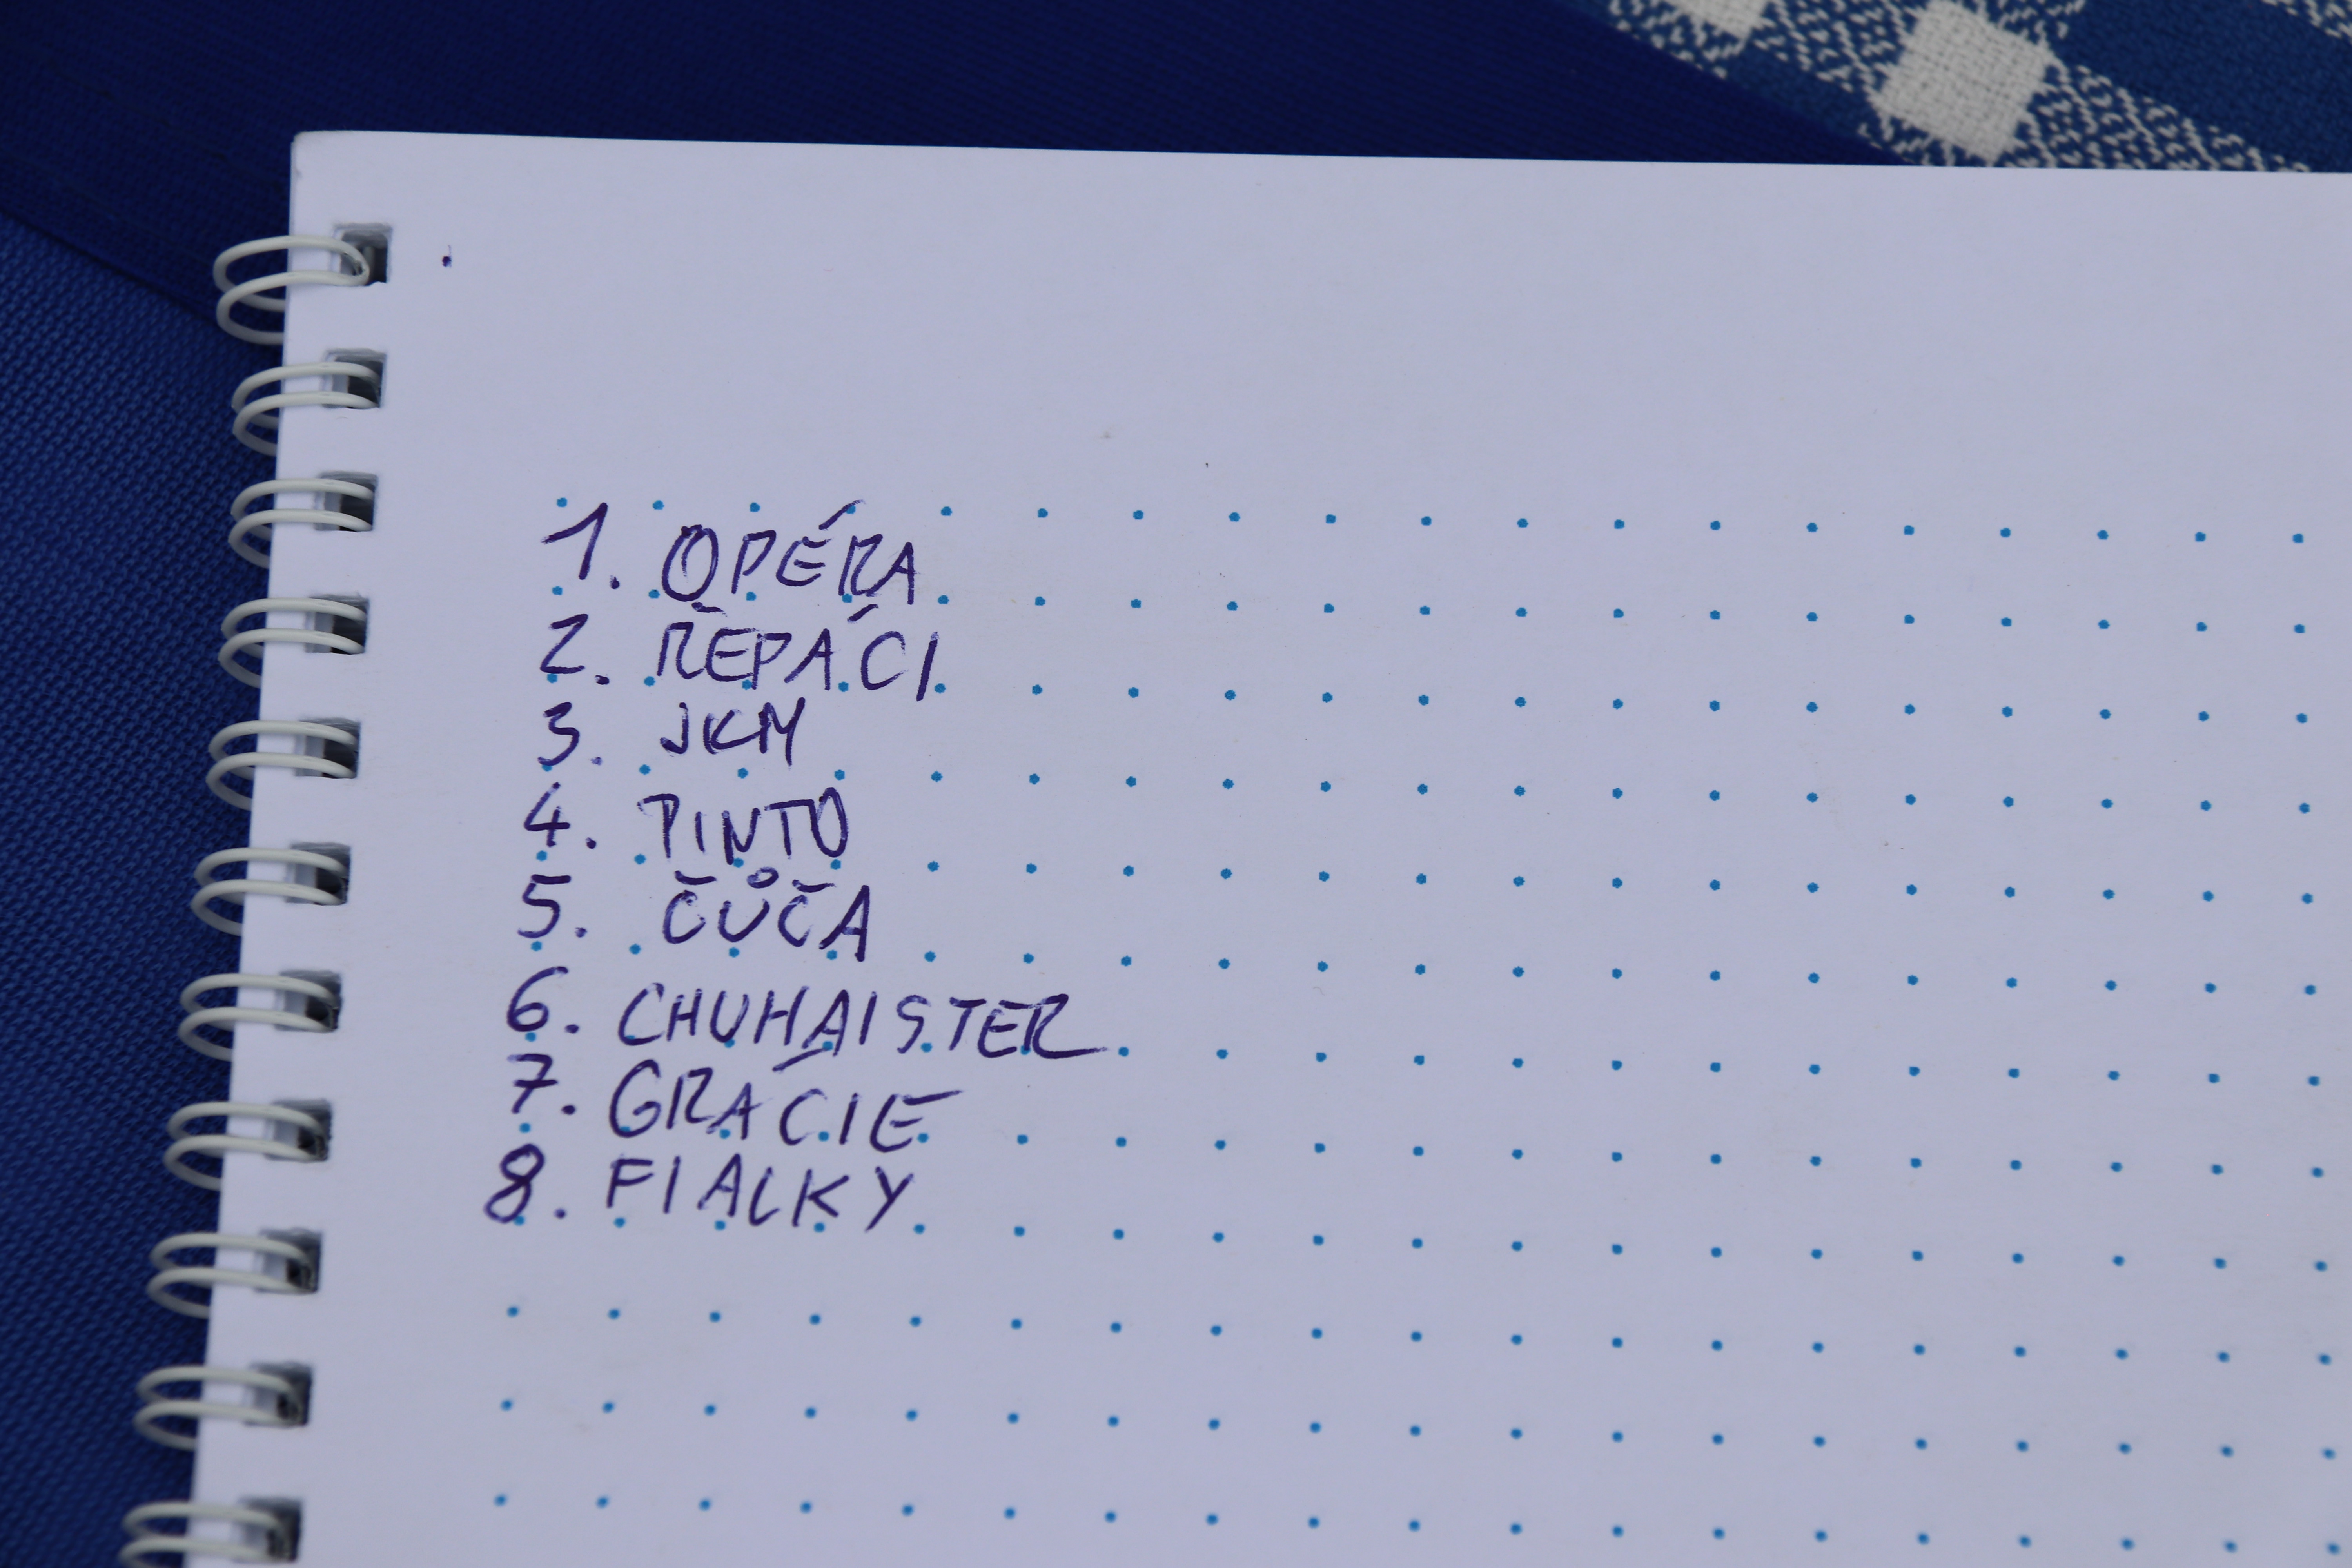 1. OPÉRA
2. ŘEPÁCI
3. JKM
4. PINTO
5. ČŮČA
6. CHUHAISTER
7. GRÁCIE
8. FIALKY